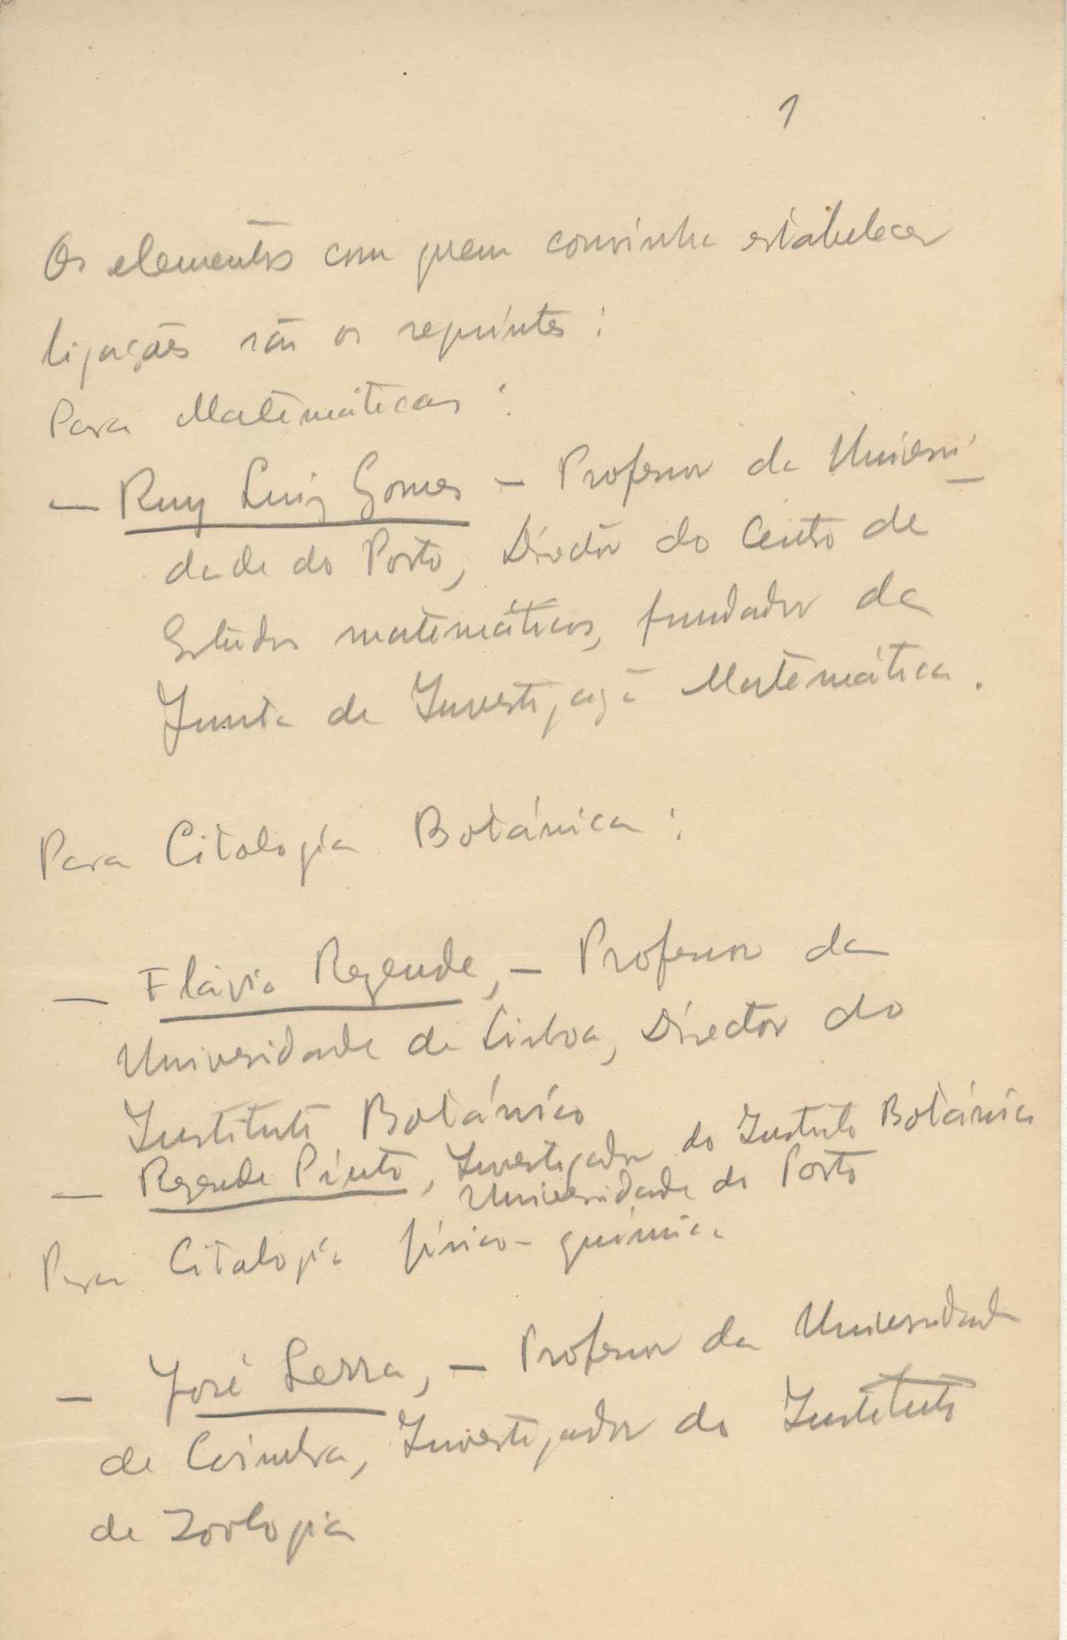 1
Os elementos com quem convinha estabelecer
ligações são os seguintes:
Para Matemáticas:
— Ruy Luiz Gomes — Professor da Universi-
dade do Porto, Director do Centro de
Estudos matemáticos, fundador da
Junta de Investigação Matemática.
Para Citologia Botánica:
— Flávio Rezende, — Professor da
Universidade de Lisboa, Director do
Instituto Botánico
— Rezende Pinto, Investigador do Instituto Botánico
Universidade do Porto
Para Citologia físico-química
— José Serra, — Professor da Universidade
de Coimbra, Investigador do Instituto
de Zoologia